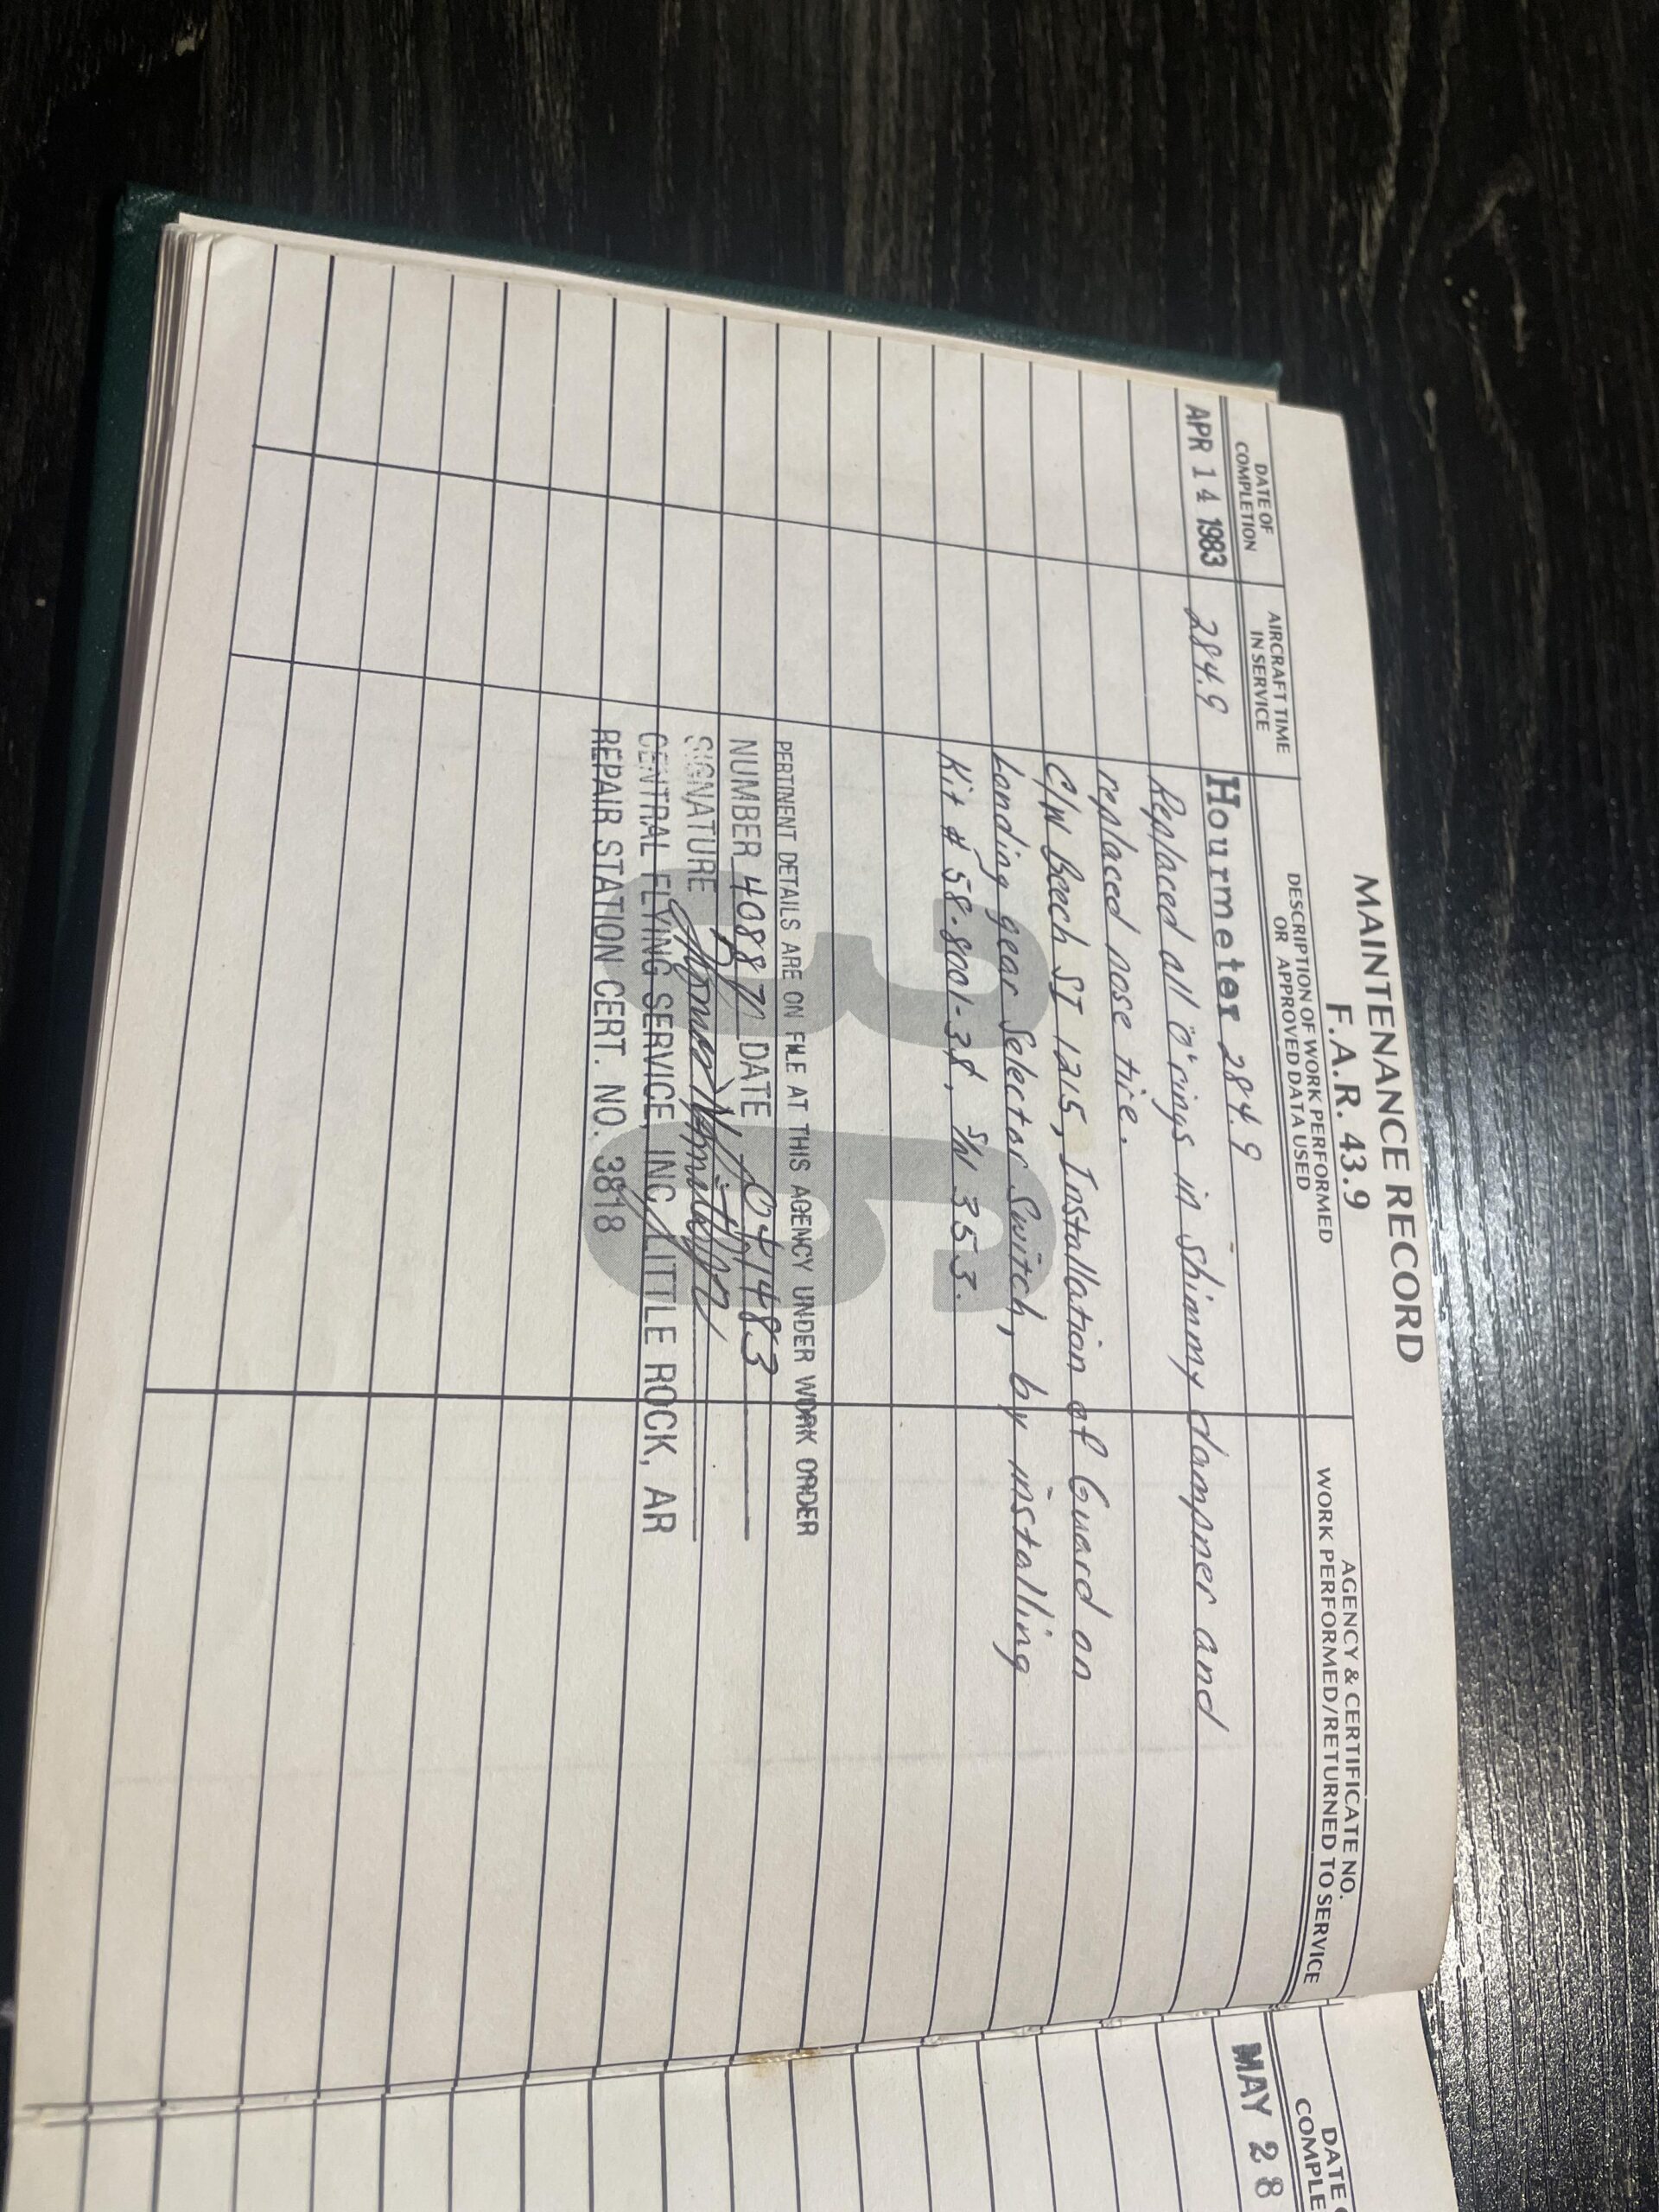 MAINTENANCE RECORD
F.A.R. 43.9
DATE OF
COMPLETION
AIRCRAFT TIME
IN SERVICE
DESCRIPTION OF WORK PERFORMED
OR APPROVED DATA USED
AGENCY & CERTIFICATE NO.
WORK PERFORMED/RETURNED TO SERVICE
APR 14 1983 284.9 Hourmeter 284.9
Replaced all "O" rings in shimmy dampner and
replaced nose tire.
C/W Beech SI 1215, Installation of Guard on
Landing gear Selector Switch, by installing
Kit # 58-8001-3S, SN 353.
36
PERTINENT DETAILS ARE ON FILE AT THIS AGENCY UNDER WORK ORDER
NUMBER 40887 DATE 041483
SIGNATURE
CENTRAL FLYING SERVICE, INC./LITTLE ROCK, AR
REPAIR STATION CERT. NO. 3818
DATE
COMPLE
MAY 28